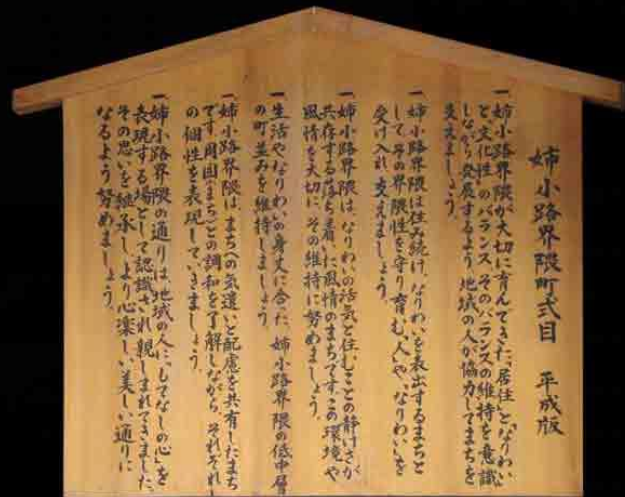 姉小路界隈町式目　平成版
一、姉小路界隈が大切に育んできた、「居住」と「なりわい
と文化性」のバランス そのバランスの維持を意識
しながら発展するよう 地域の人が協力してまちを
支えましょう。
一、姉小路界隈は住み続け、なりわいを表出するまちと
して、その界隈性を守り育む、人や、なりわいを
受け入れ、支えましょう。
一、姉小路界隈は、なりわいの活気と住むことの静けさが
共存する落ち着いた風情のまちです。この環境や
風情を大切に、その維持に努めましょう。
一、生活やなりわいの身丈に合った、姉小路界隈の低中層
の町並みを維持しましょう。
一、姉小路界隈は、まちへの気遣いと配慮を共有したまち
です。周囲（まち）との調和を了解しながら、それぞれ
の個性を表現していきましょう。
一、姉小路界隈の通りは、地域の人に、「もてなしの心」を
表現する場として認識され親しまれてきました。
その思いを継承し、より心楽しい、美しい通りに
なるよう努めましょう。